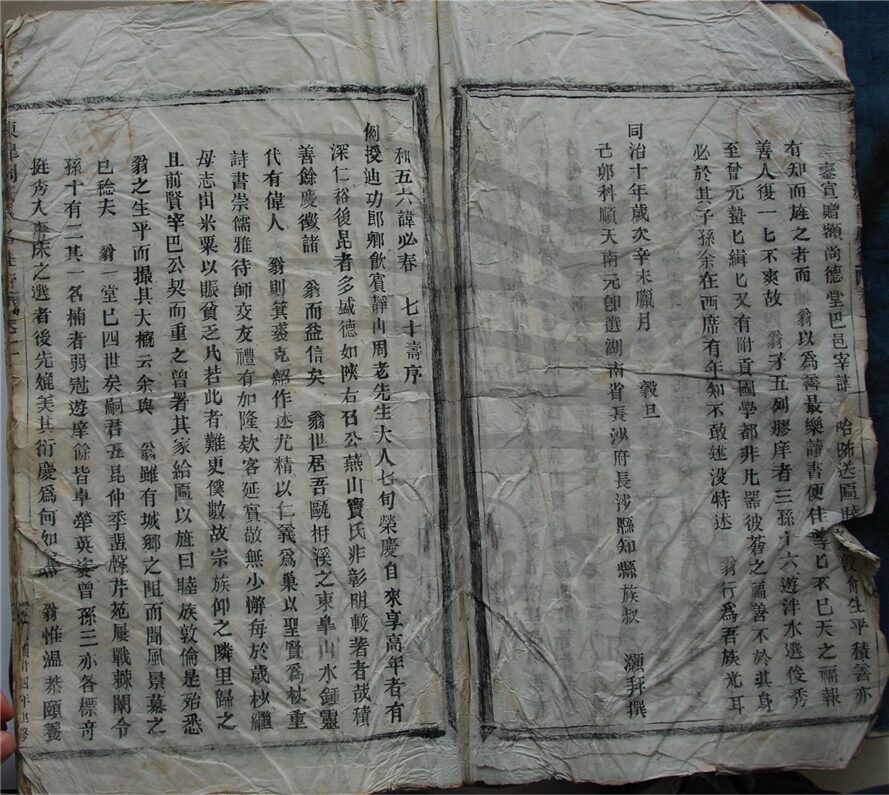 臺宣贈額尚德堂巴邑宰許 哈師送匾睦 敦倫生平積善亦
有知而旌之者而 翁以為善最樂讀書便佳善已不已天之福報
善人復一匕不爽故 翁子五列膠庠者三孫十六遊泮水選俊秀
至曾元蟄匕緝匕又有附貢國學都非凡器彼蒼之福善不於其身
必於其子孫余在西席有年知不敢述沒特述 翁行為吾族光耳
同治十年歲次辛未臘月 穀旦
己卯科順天南元即選湖南省長沙府長沙縣知縣族叔 灝拜撰
和五六諱必春 七十壽序
例授迪功郎鄉飲賓靜山周老先生大人七旬榮慶自來享高年者有
深仁裕後昆者多盛德如陝右召公燕山竇氏非彰明較著者哉積
善餘慶徵諸 翁而益信矣 翁世居吾甌枏溪之東皐山水鍾靈
代有偉人 翁則箕裘克紹作述尤精以仁義為巢以聖賢為杖重
詩書崇儒雅待師交友禮有加隆欵客延賓敬無少懈每於歲杪繼
母志出米粟以賑貧乏凡若此者難更僕數故宗族仰之隣里歸之
且前賢宰巴公契而重之曾署其家給匾以旌曰睦族敦倫是殆悉
翁之生平而撮其大概云余與 翁雖有城鄉之阻而聞風景慕之
已稔夫 翁一堂已四世矣嗣君五昆仲季蜚聲芹苑屢戰棘闈令
孫十有二其一名楠者弱冠遊庠餘皆卓犖英姿曾孫三亦各標奇
挺秀入 床之選者後先媲美其衍慶為何如 翁惟溫恭頤養